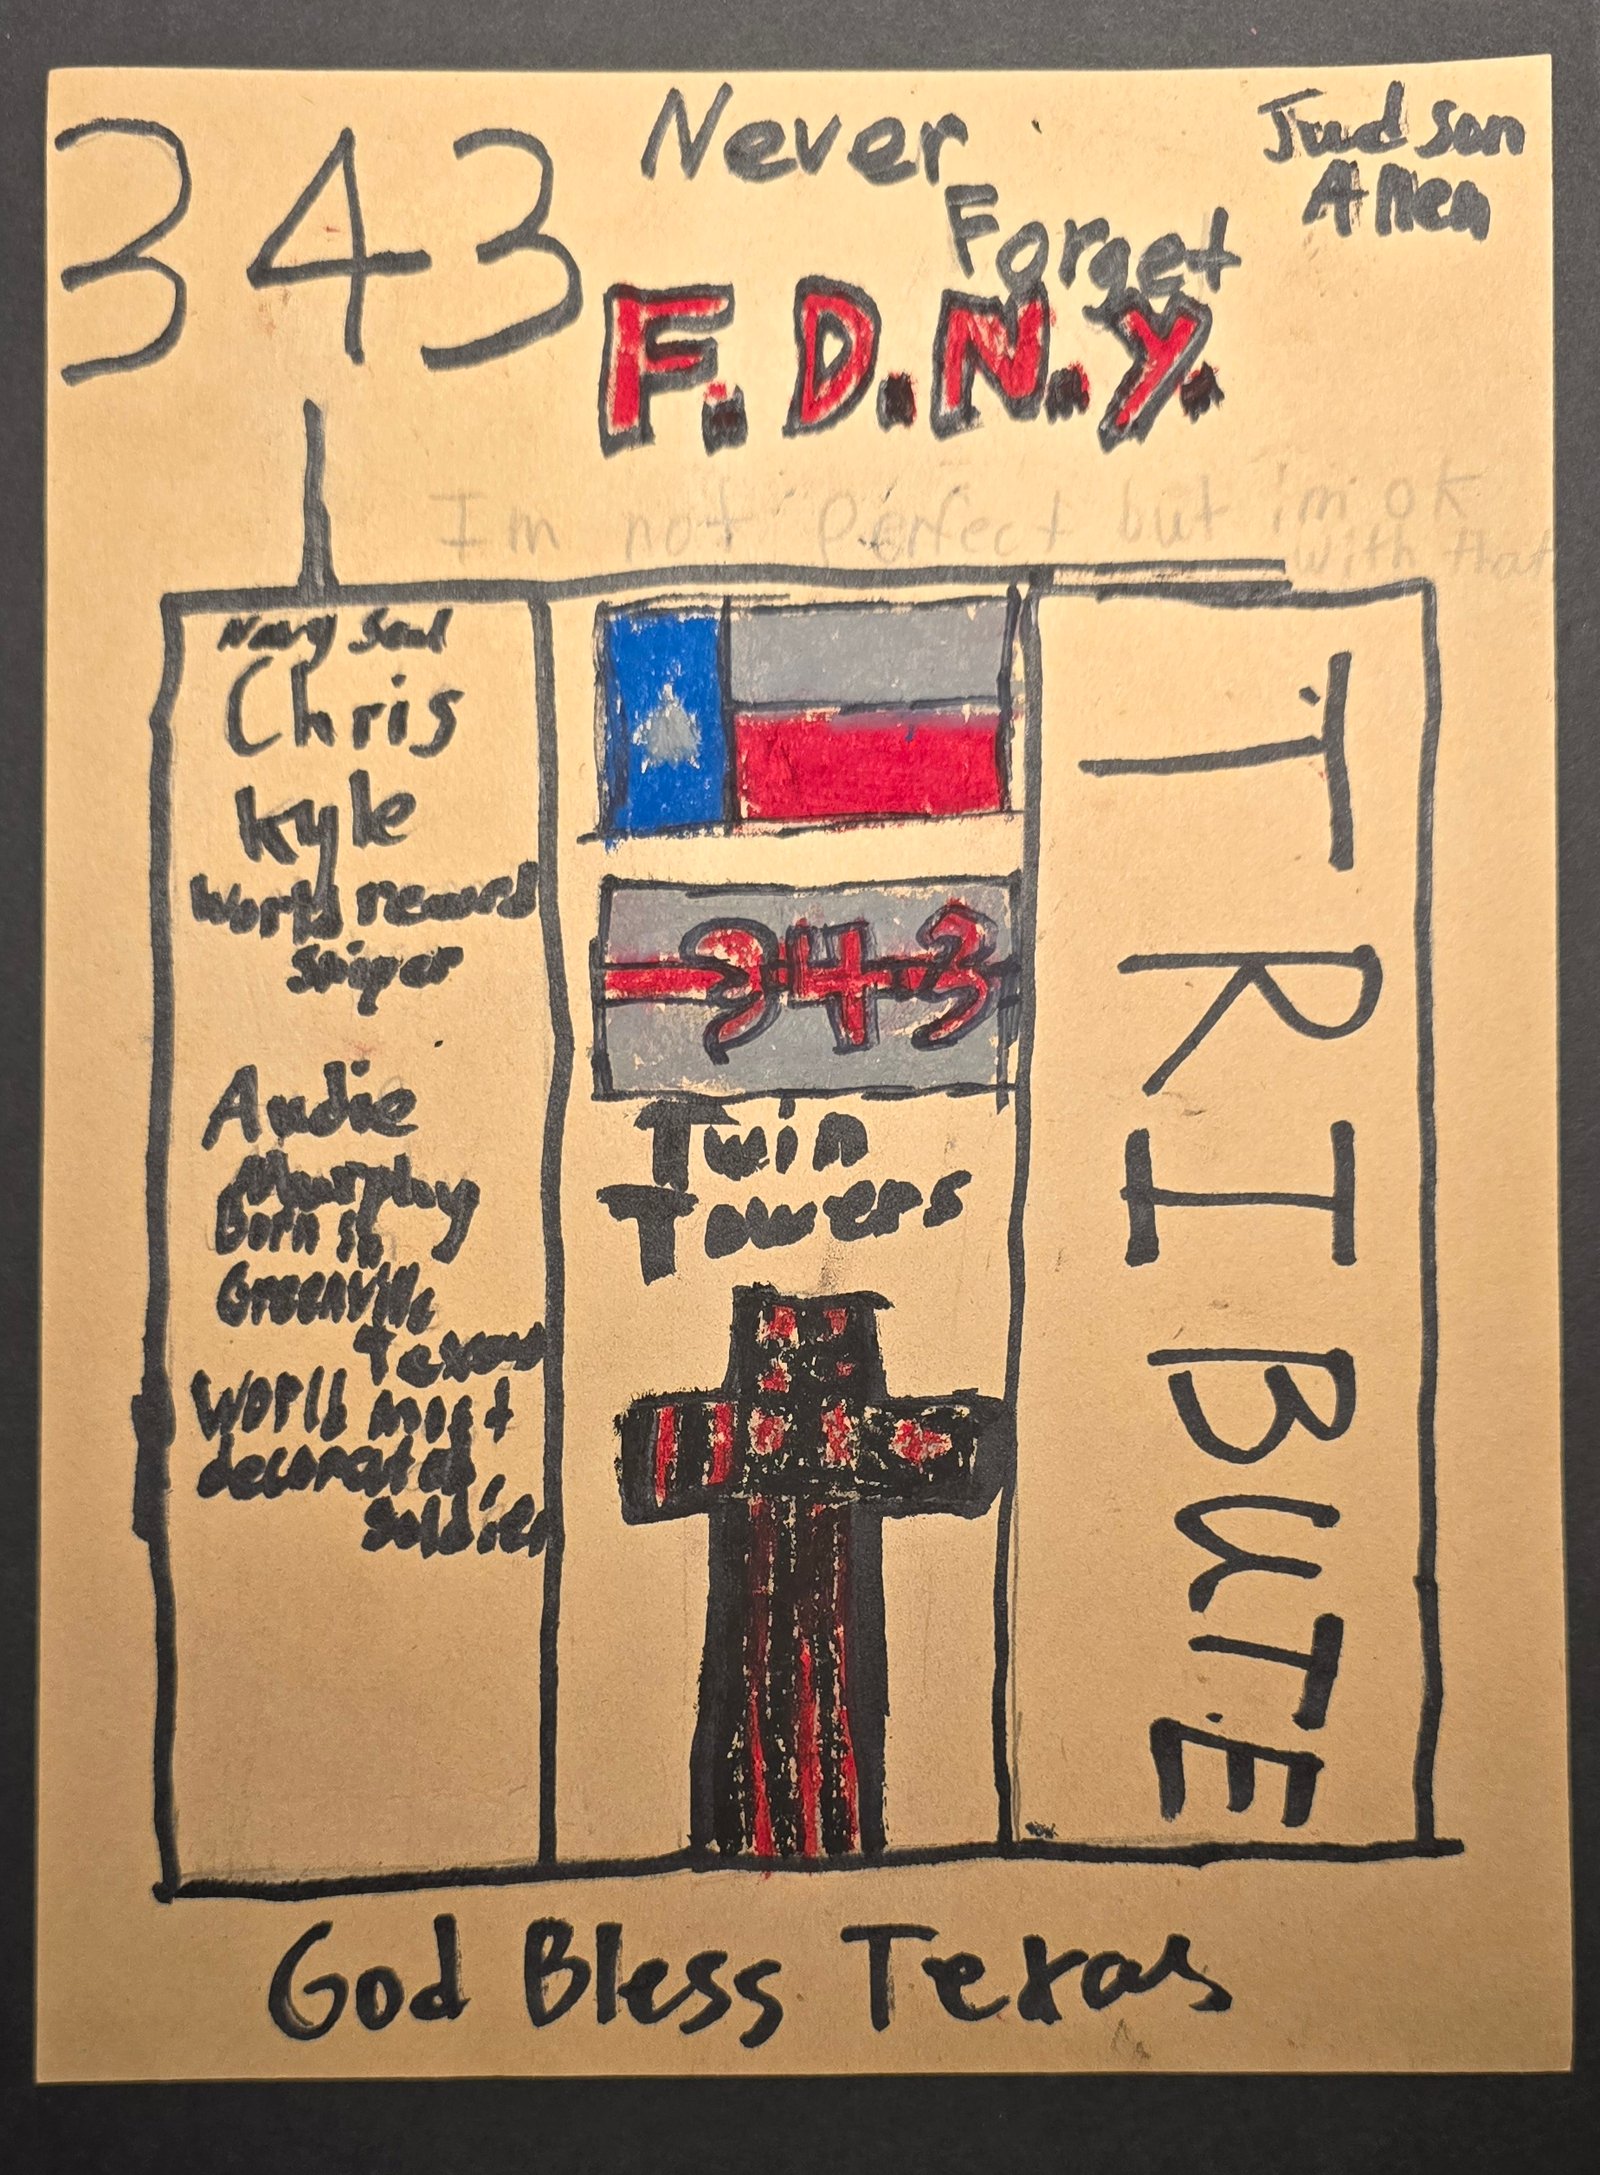 343
Never
Forget
Judson
Allen
F.D.N.Y.
I'm not perfect but i'm ok
with that
Navy Seal
Chris
Kyle
World
Sniper
Audie
Murphy
Born in
Greenville
Texas
World most
decorated
soldier
343
Twin
Towers
TRIBUTE
God Bless Texas